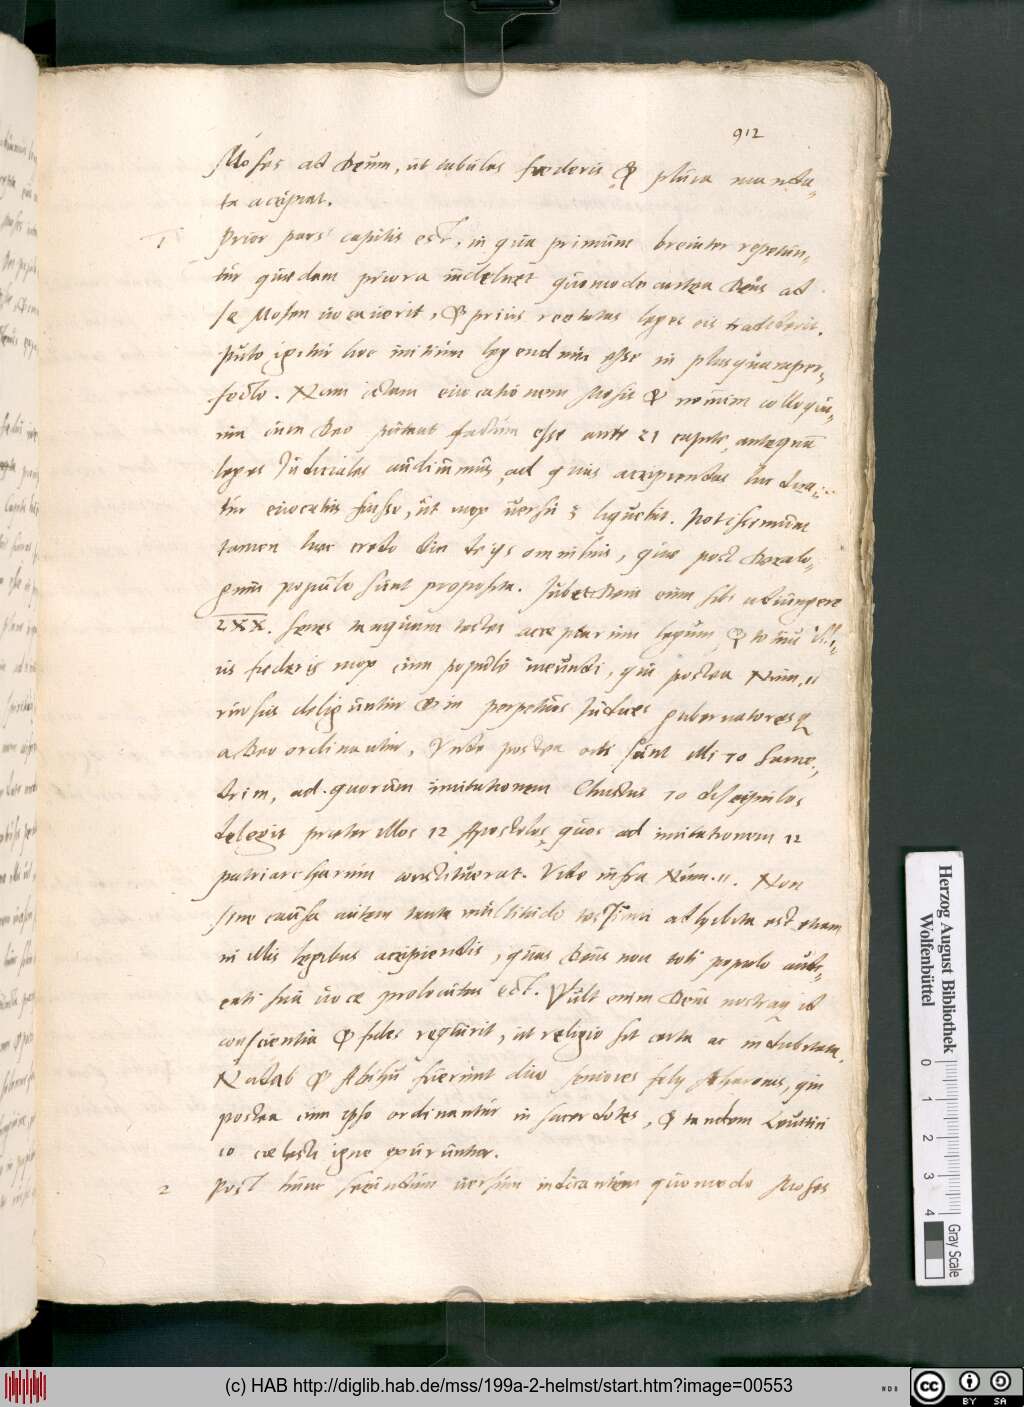 912
Moses ad Deum, ut tabulas foederis & plura manda-
ta accipiat.
1 Prior pars capitis est, in qua primum breviter repetun-
tur quaedam priora videlicet quomodo antea Deus ad
se Mosen vocaverit, & prius recitatas leges eis tradiderit.
Puto igitur hoc initium legendum esse in plusquamper-
fecto. Nam istam evocationem Mosis & colloqui-
um cum Deo putant factum esse ante 21 caput, antequam
leges Judiciales audivimus, ad quas accipiendas hic
tur evocatus fuisse, ut mox versu 3 liquebit. Potissimum
tamen haec credo dici de ijs omnibus, quae post Decalo-
gum populo sunt proposita. Jubet Deus eum sibi adiungere
LXX. senes tanquam testes acceptarum legum, & totius illi-
us foederis mox cum populo ineundi, qui postea Num. 11
rursus deliguntur & in perpetuos Judices gubernatoresq
a Deo ordinantur. Unde postea orti sunt illi 70 Sane-
drim, ad quorum imitationem Christus 70 discipulos
delegit praeter illos 12 Apostolos, quos ad imitationem 12
patriarcharum constituerat. Vide infra Num. 11. Non
sine causa autem tanta multitudo testium adhibita est etiam
in illis legibus accipiendis, quas Deus non toti populo audi-
enti sua voce prolocutus est. Vult enim Deus
conscientia & fides requirit, ut religio sit certa ac indubitata.
Nadab & Abihu fuerunt duo seniores filij Aharonis, qui
postea cum ipso ordinantur in sacerdotes, & tandem Levitici
10 coelesti igne exuruntur.
2 Post hunc secundum versum indicantem quomodo Moses
Herzog August Bibliothek
Wolfenbüttel
0 1 2 3 4
Gray Scale
(c) HAB http://diglib.hab.de/mss/199a-2-helmst/start.htm?image=00553
cc BY SA